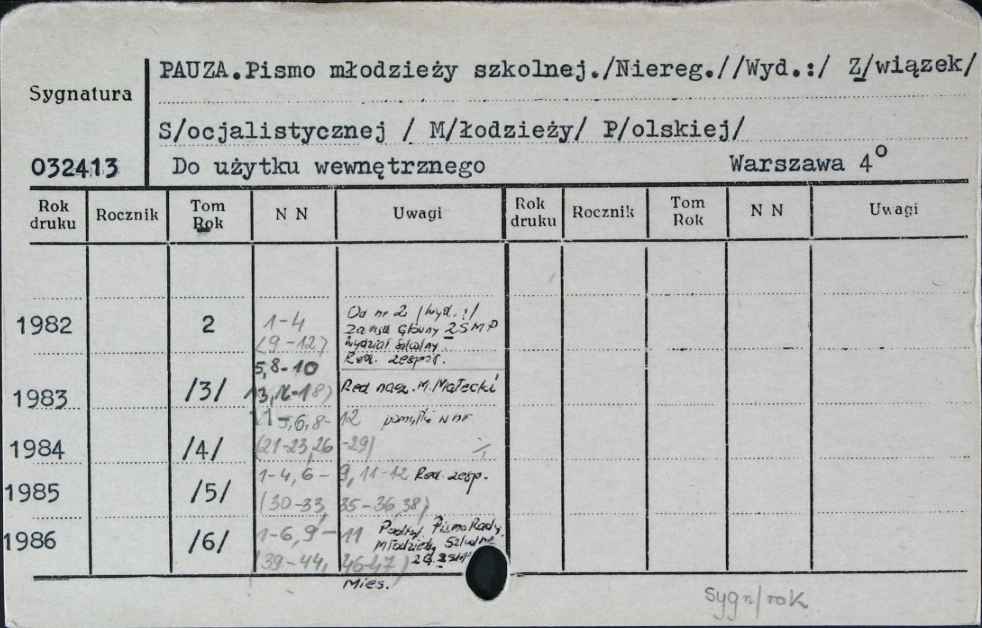 PAUZA.Pismo młodzieży szkolnej./Niereg.//Wyd.:/ Z/wiązek/
Sygnatura
S/ocjalistycznej / M/łodzieży/ P/olskiej/
032413 Do użytku wewnętrznego Warszawa 4°
Rok druku Rocznik Tom Rok N N Uwagi Rok druku Rocznik Tom Rok N N Uwagi
Od nr 2 /wyd.:/
1982 2 1-4 Zarząd Główny ZSMP
(9-12) Wydział Szkolny.
5,8-10 Red. zespoł.
1983 /3/ 13,16-18) Red. nacz. M. Małecki
1-5,6,8-12 pomyłki
1984 /4/ (21-23,26-29)
1-4, 6-9, 11-12 Red. zesp.
1985 /5/ (30-33, 35-36,38)
1986 /6/ 1-6, 9-11 Pismo Rady
Młodzieży Szkolne
(39-44, 46-47) ZG ZSMP
Mies.
Sygn/rok